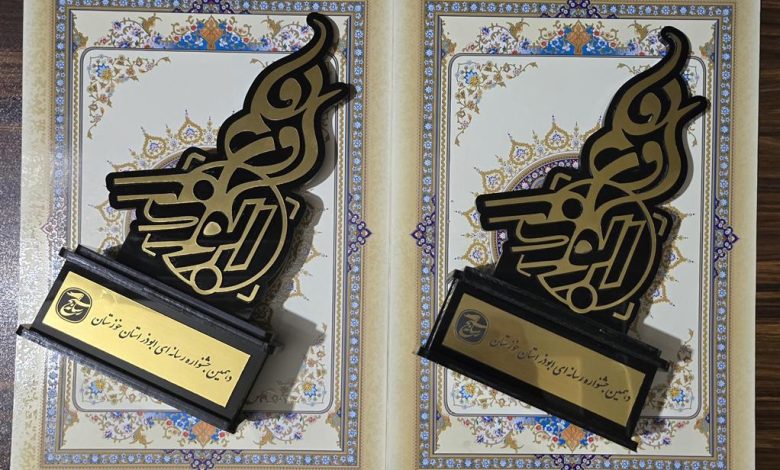 دهمین جشنواره رسانه ای ابوذر استان خوزستان
بسیج
دهمین جشنواره رسانه ای ابوذر استان خوزستان
بسیج
ابوذر
ابوذر